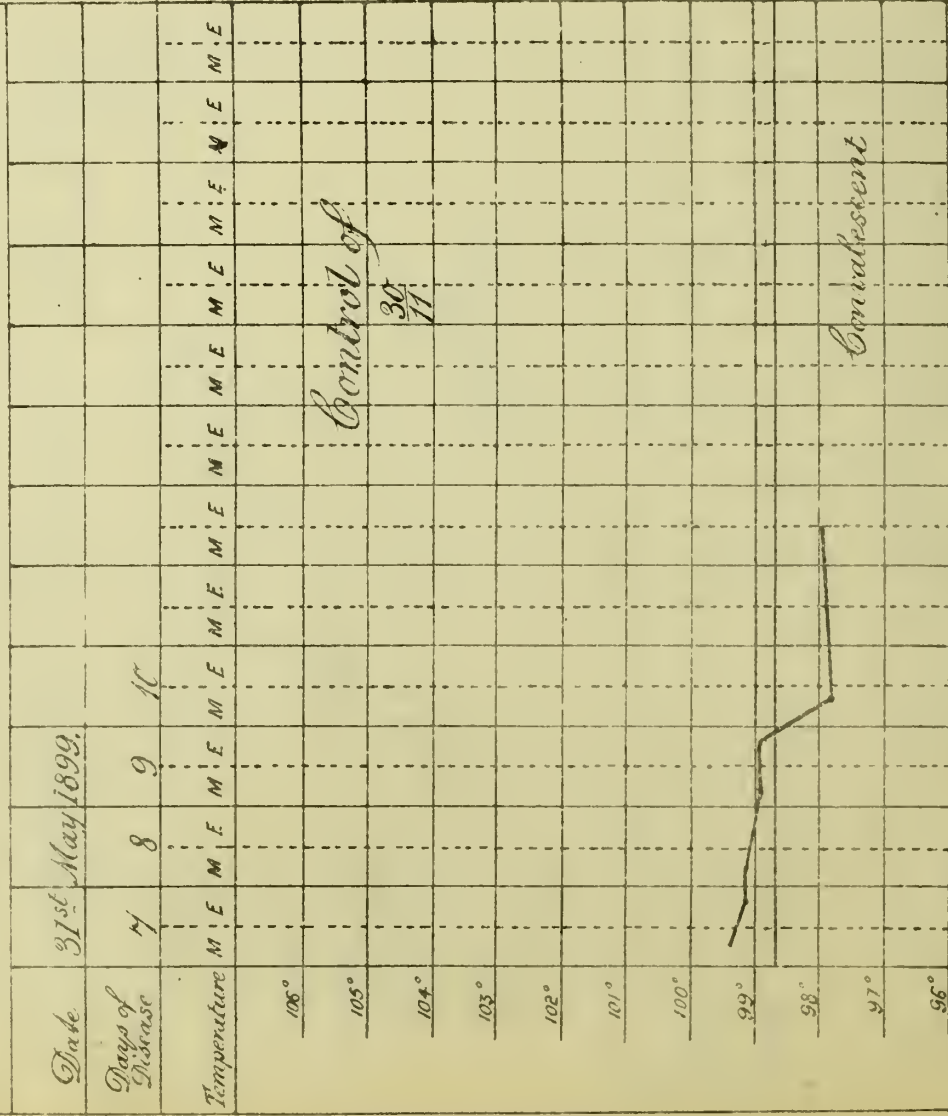 Date 31st May 1899.
Days of
Disease 7 8 9 10
Temperature M E M E M E M E M E M E M E M E M E M E M E M E
106°
105°
104°
103°
102°
101°
100°
99°
98°
97°
96°
Control of
30
11
Convalescent